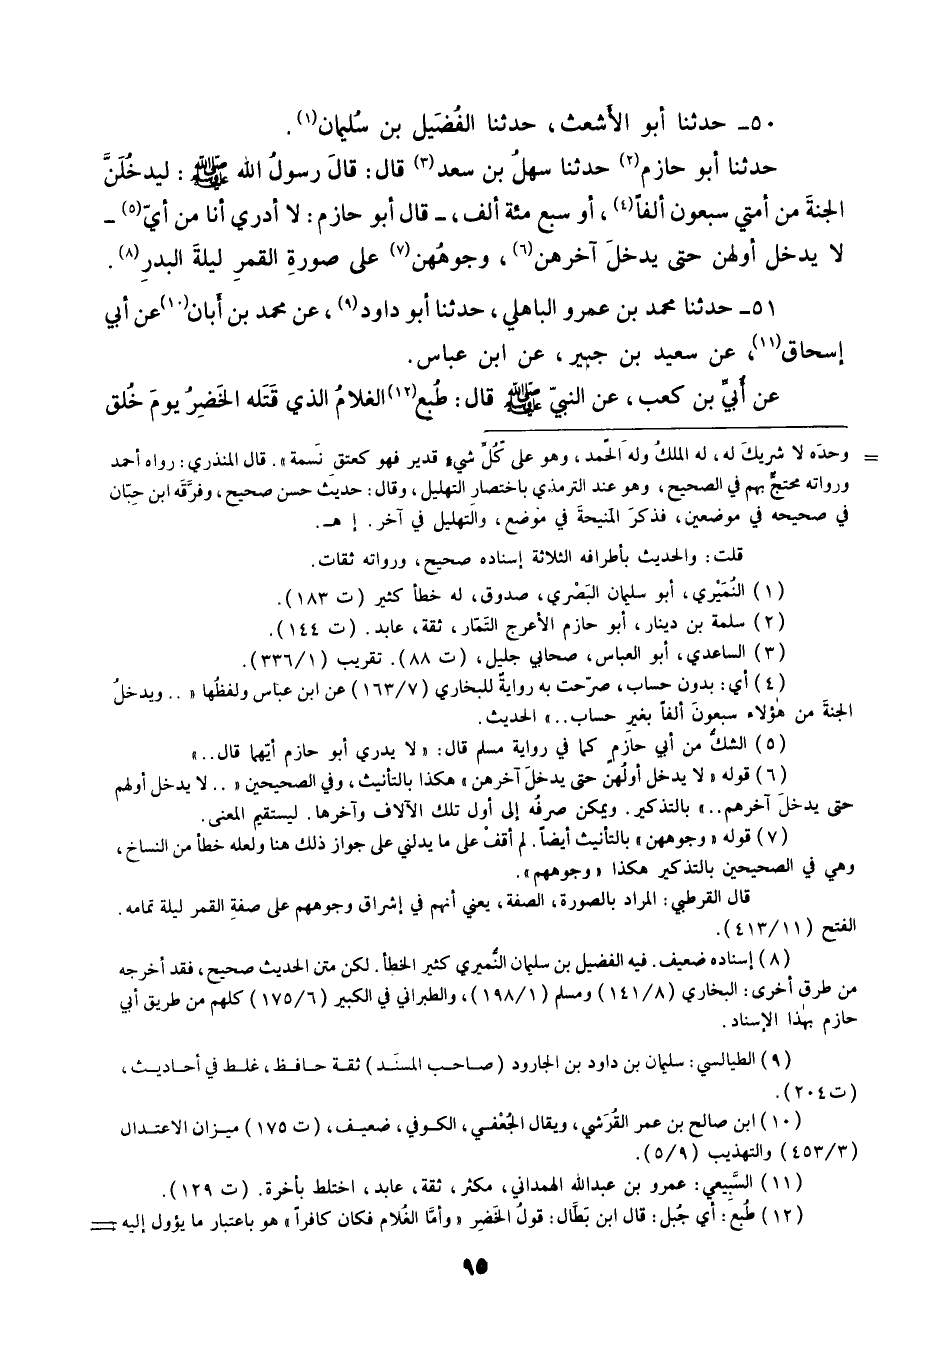 ٥٠ـ حدثنا أبو الأشعث، حدثنا الفُضَيل بن سُليمان(١).
حدثنا أبو حازم(٢) حدثنا سهلُ بن سعد(٣) قال: قالَ رسولُ الله ﷺ: ليدخُلَنَّ
الجنةَ من أمتي سبعون ألفاً(٤)، أو سبع مئة ألف، ـ قال أبو حازم: لا أدري أنا من أيّ(٥) ـ
لا يدخل أولهن حتى يدخلَ آخرهن(٦)، وجوهُهن(٧) على صورةِ القمرِ ليلةَ البدرِ(٨).
٥١ـ حدثنا محمد بن عمرو الباهلي، حدثنا أبو داود(٩)، عن محمد بن أَبان(١٠) عن أبي
إسحاق(١١)، عن سعيد بن جبير، عن ابن عباس.
عن أُبيِّ بن كعب، عن النبيّ ﷺ قال: طُبع(١٢) الغلامُ الذي قَتَله الخَضِرُ يومَ خُلق
= وحدَه لا شريكَ له، له الملكُ وله الحَمد، وهو على كُلِّ شيءٍ قدير فهو كعتقِ نَسمة». قال المنذري: رواه أحمد
ورواته محتجٌّ بهم في الصحيح، وهو عند الترمذي باختصار التهليل، وقال: حديث حسن صحيح، وفرَّقه ابن حِبّان
في صحيحه في موضعين، فذكرَ المنيحةَ في موضع، والتهليل في آخر. إ هـ.
قلت: والحديث بأطرافه الثلاثة إسناده صحيح، ورواته ثقات.
(١) النُمَيْري، أبو سليمان البَصْري، صدوق، له خطأ كثير (ت ١٨٣).
(٢) سلمة بن دينار، أبو حازم الأعرج التَمّار، ثقة، عابد. (ت ١٤٤).
(٣) الساعدي، أبو العباس، صحابي جليل، (ت ٨٨). تقريب (٣٣٦/١).
(٤) أي: بدون حساب، صرّحت به روايةٌ للبخاري (١٦٣/٧) عن ابن عباس ولفظُها «.. ويدخلُ
الجنةَ من هٰؤلاء سبعونَ ألفاً بغيرِ حساب..» الحديث.
(٥) الشكُّ من أبي حازمٍ كما في رواية مسلم قال: «لا يدري أبو حازم أيّهما قال..»
(٦) قوله «لا يدخل أولُهن حتى يدخلَ آخرهن» هكذا بالتأنيث، وفي الصحيحين «.. لا يدخل أولهم
حتى يدخلَ آخرهم..» بالتذكير. ويمكن صرفُه إلى أول تلك الآلاف وآخرها. ليستقيم المعنى.
(٧) قوله «وجوههن» بالتأنيث أيضاً. لم أقفْ على ما يدلني على جواز ذلك هنا ولعله خطأ من النساخ،
وهي في الصحيحين بالتذكير هكذا «وجوههم».
قال القرطبي: المراد بالصورة، الصفة، يعني أنهم في إشراق وجوههم على صفةِ القمر ليلة تمامه.
الفتح (٤١٣/١١).
(٨) إسناده ضعيف. فيه الفضيل بن سليمان النُّميري كثير الخطأ. لكن متن الحديث صحيح، فقد أخرجه
من طرق أخرى: البخاري (١٤١/٨) ومسلم (١٩٨/١)، والطبراني في الكبير (١٧٥/٦) كلهم من طريق أبي
حازم بهٰذا الإسناد.
(٩) الطيالسي: سليمان بن داود بن الجارود (صاحب المسنَد) ثقة حافظ، غلط في أحاديث،
(ت ٢٠٤).
(١٠) ابن صالح بن عمر القُرَشي، ويقال الجُعْفي، الكوفي، ضعيف، (ت ١٧٥) ميزان الاعتدال
(٤٥٣/٣) والتهذيب (٥/٩).
(١١) السَّبِيعي: عمرو بن عبدالله الهمداني، مكثر، ثقة، عابد، اختلط بأخرة. (ت ١٢٩).
(١٢) طُبع: أي جُبل: قال ابن بَطَّال: قولُ الخَضِر «وأمّا الغُلام فكان كافراً» هو باعتبار ما يؤول إليه =
٩٥